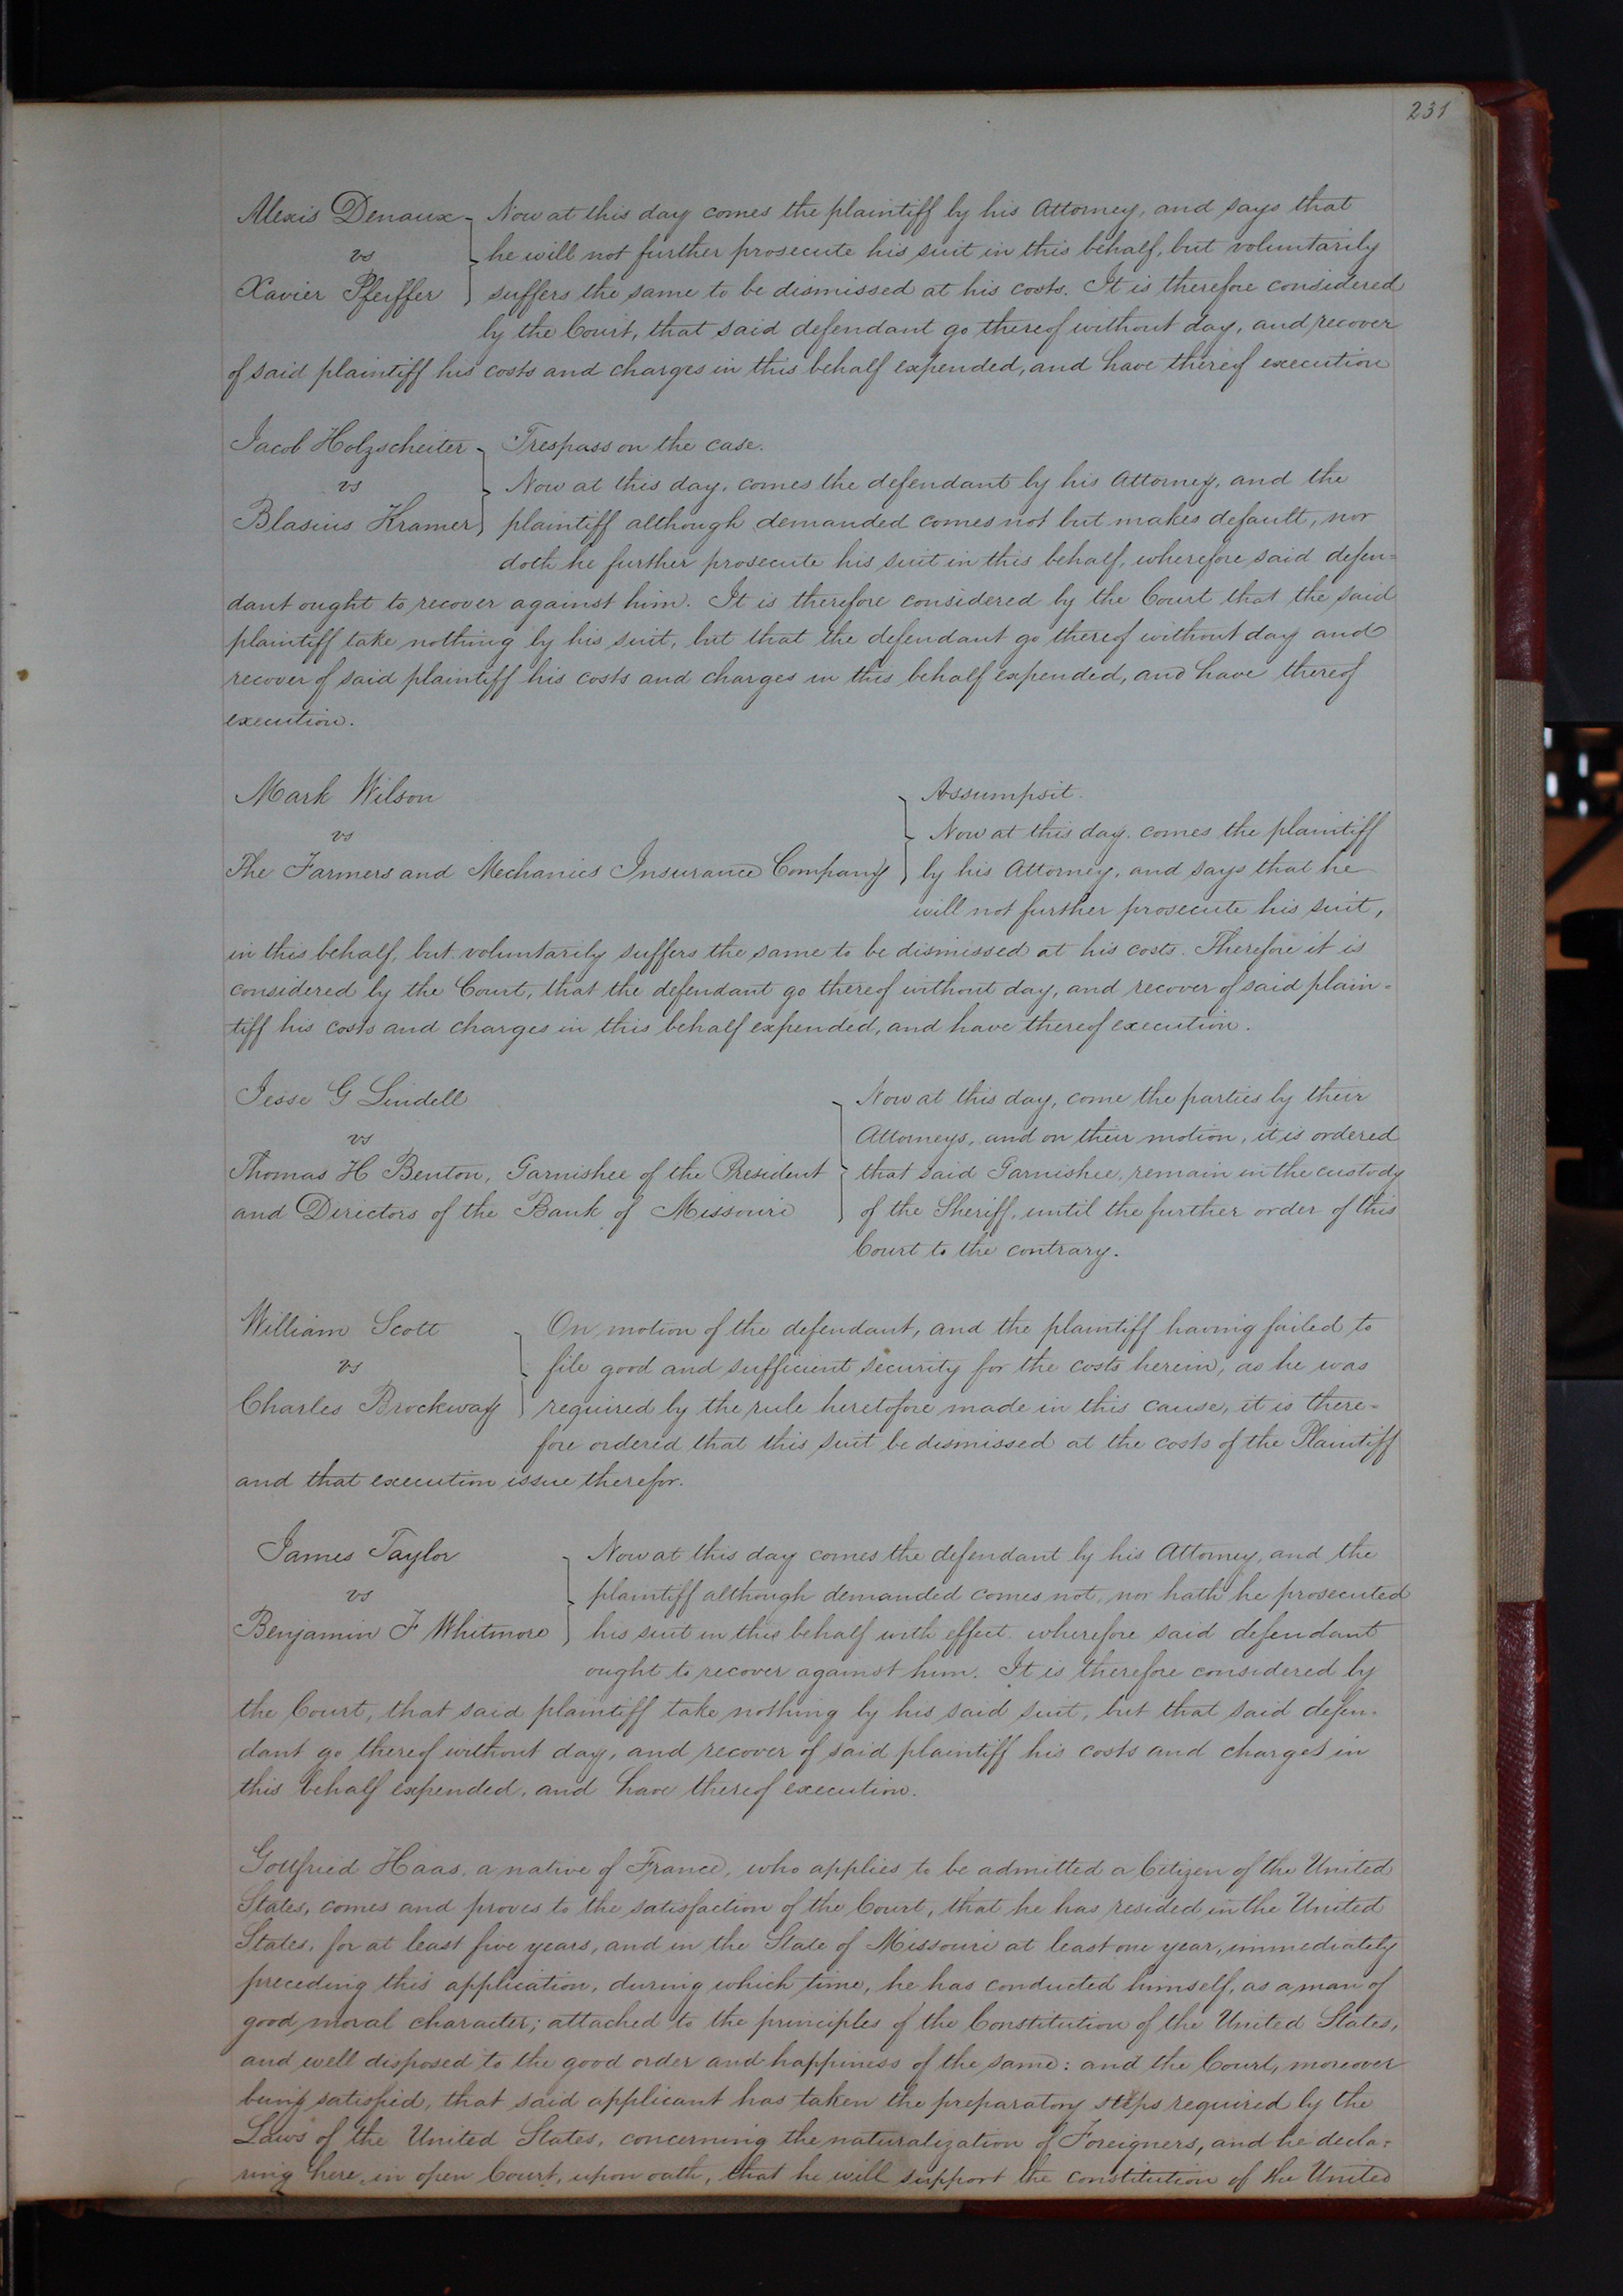 231
Alexis Denaux Now at this day comes the plaintiff by his Attorney, and says that
vs he will not further prosecute his suit in this behalf, but voluntarily
Xavier Pfeiffer suffers the same to be dismissed at his costs. It is therefore considered
by the Court, that said defendant go thereof without day, and recover
of said plaintiff his costs and charges in this behalf expended, and have thereof execution
Jacob Holzscheiter Trespass on the case.
vs Now at this day, comes the defendant by his Attorney, and the
Blasius Kramer plaintiff although demanded comes not but makes default, nor
doth he further prosecute his suit in this behalf, wherefore said defen=
dant ought to recover against him. It is therefore considered by the Court that the said
plaintiff take nothing by his suit, but that the defendant go thereof without day and
recover of said plaintiff his costs and charges in this behalf expended, and have thereof
execution.
Mark Wilson Assumpsit.
vs Now at this day, comes the plaintiff
The Farmers and Mechanics Insurance Company by his Attorney, and says that he
will not further prosecute his suit,
in this behalf, but voluntarily suffers the same to be dismissed at his costs. Therefore it is
considered by the Court, that the defendant go thereof without day, and recover of said plain=
tiff his costs and charges in this behalf expended, and have thereof execution.
Jesse G Lindell Now at this day, come the parties by their
vs Attorneys, and on their motion, it is ordered
Thomas H Benton, Garnishee of the President that said Garnishee, remain in the custody
and Directors of the Bank of Missouri of the Sheriff, until the further order of this
Court to the contrary.
William Scott On motion of the defendant, and the plaintiff having failed to
vs file good and sufficient security for the costs herein, as he was
Charles Brockway required by the rule heretofore made in this cause, it is there=
fore ordered that this suit be dismissed at the costs of the Plaintiff
and that execution issue therefor.
James Taylor Now at this day comes the defendant by his Attorney, and the
vs plaintiff although demanded comes not, nor hath he prosecuted
Benjamin F Whitmore his suit in this behalf with effect. wherefore said defendant
ought to recover against him. It is therefore considered by
the Court, that said plaintiff take nothing by his said suit, but that said defen=
dant go thereof without day, and recover of said plaintiff his costs and charges in
this behalf expended, and have thereof execution.
Gottfried Haas, a native of France, who applies to be admitted a Citizen of the United
States, comes and proves to the satisfaction of the Court, that he has resided in the United
States, for at least five years, and in the State of Missouri at least one year, immediately
preceding this application, during which time, he has conducted himself, as a man of
good moral character; attached to the principles of the Constitution of the United States,
and well disposed to the good order and happiness of the same: and the Court, moreover
being satisfied, that said applicant has taken the preparatory steps required by the
Laws of the United States, concerning the naturalization of Foreigners, and he decla=
ring here, in open Court, upon oath, that he will support the constitution of the United